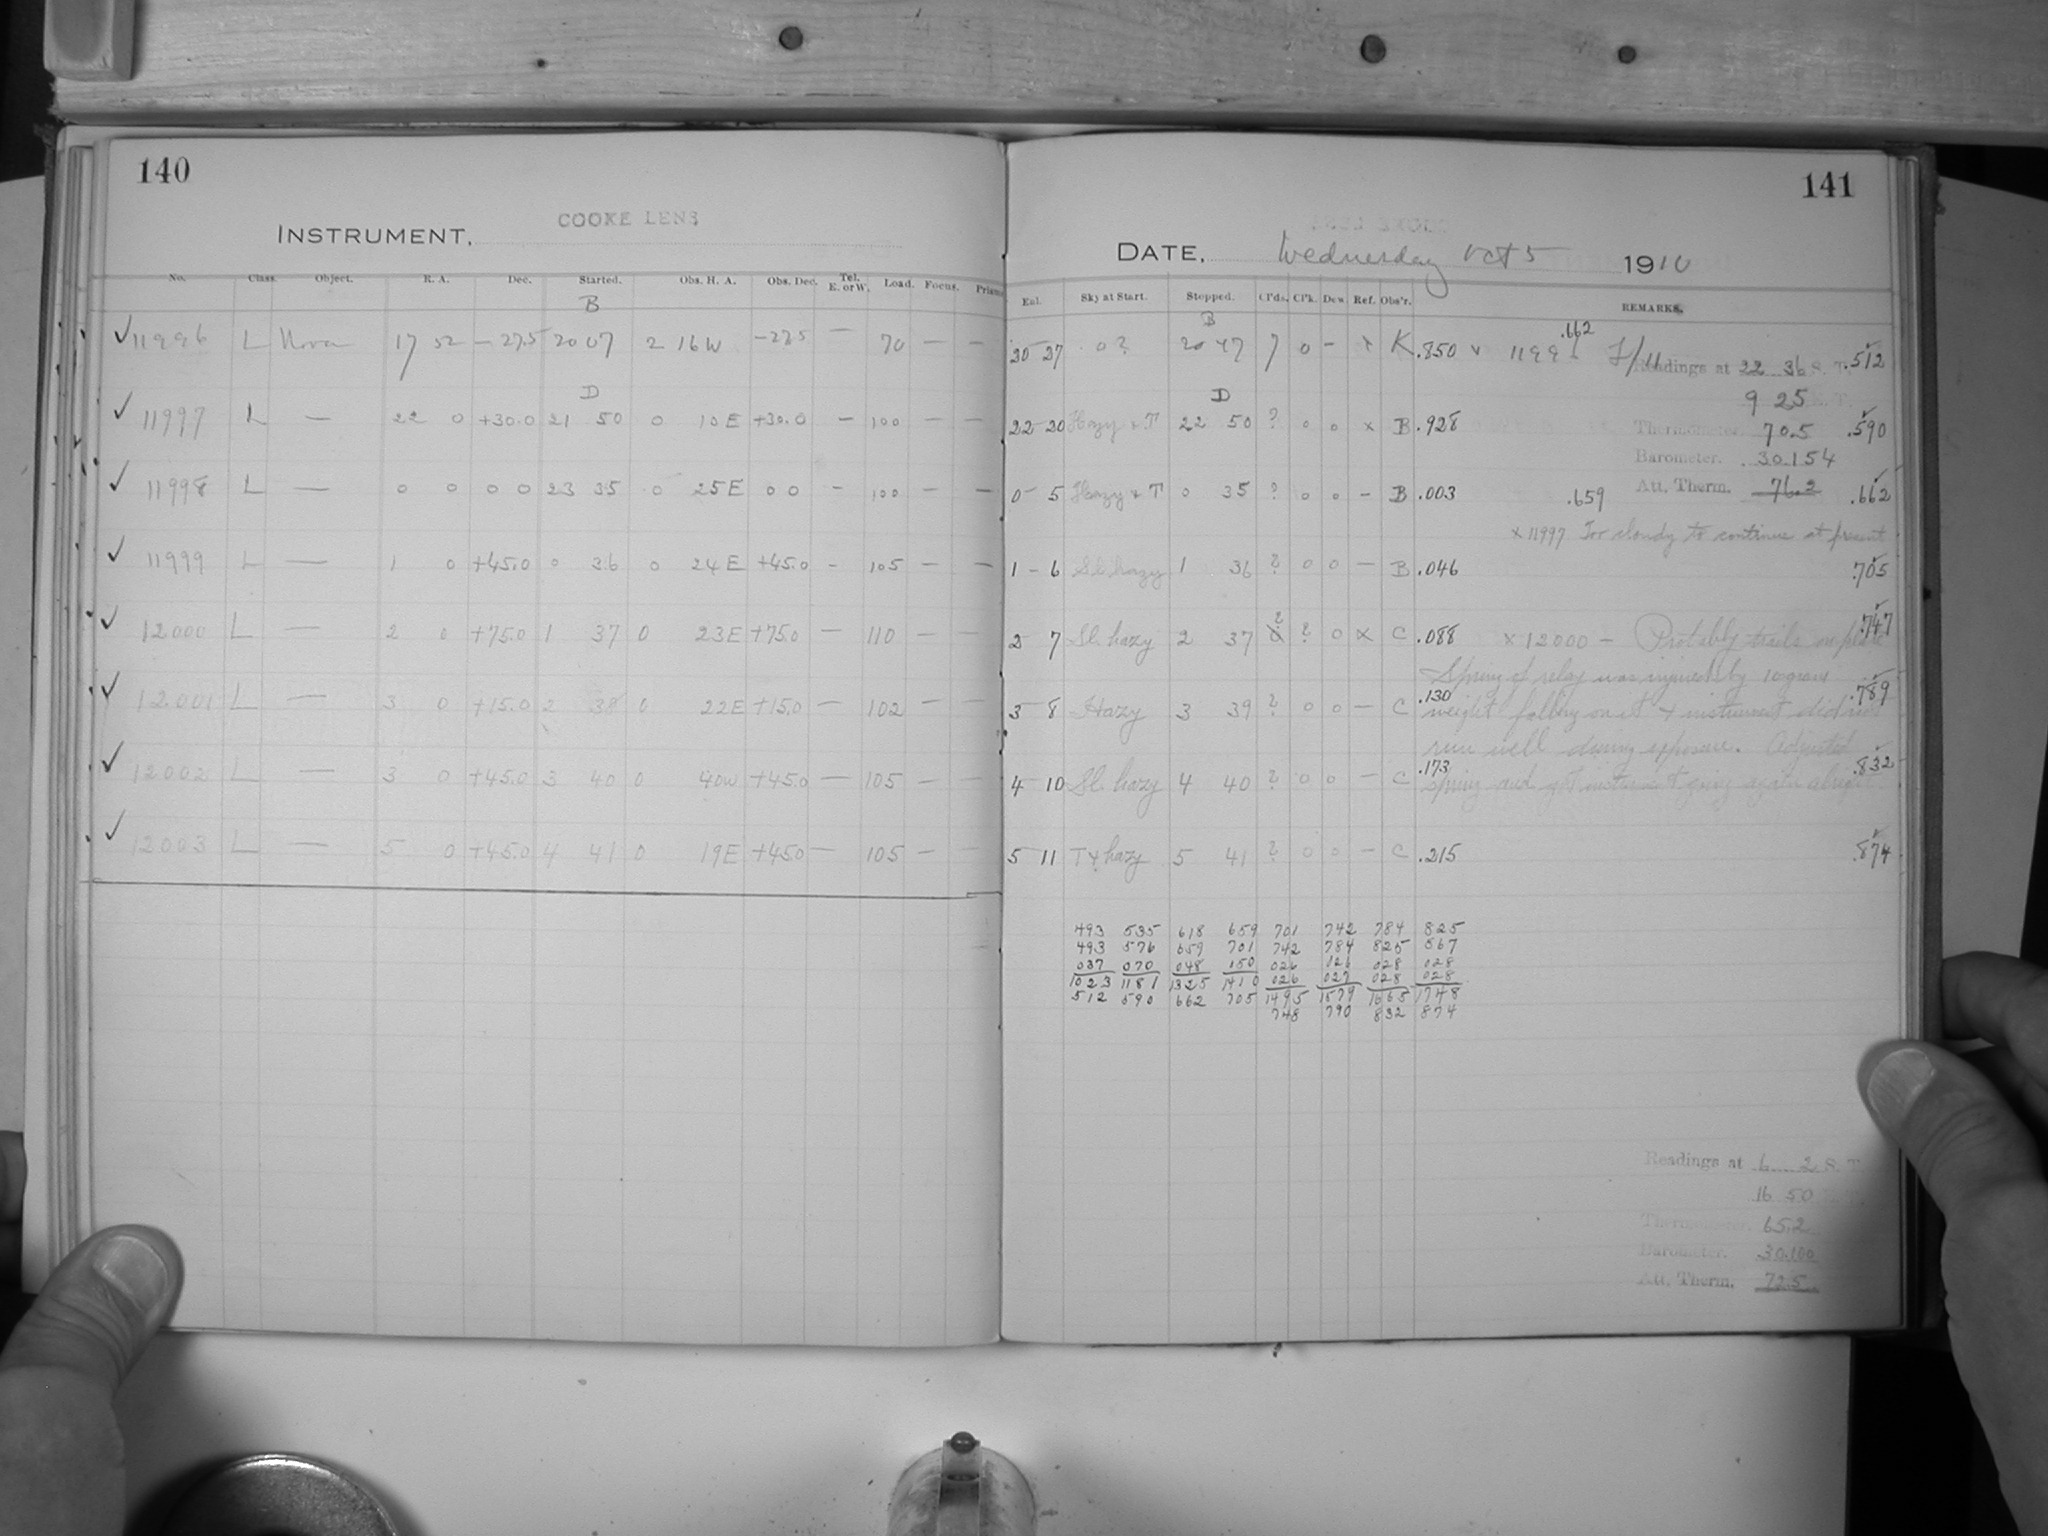 140
INSTRUMENT, COOKE LENS
No. Class. Object. R. A. Dec. Started. Obs. H. A. Obs. Dec. Tel. E. or W. Load. Focus. Prisms
B
✓ 11996 L Nova 17 52 -27.5 20 07 2 16W -27.5 — 70 — —
D
✓ 11997 L — 22 0 +30.0 21 50 0 10E +30.0 — 100 — —
✓ 11998 L — 0 0 0 0 23 35 0 25E 0 0 — 100 — —
✓ 11999 L — 1 0 +45.0 0 36 0 24E +45.0 — 105 — —
✓ 12000 L — 2 0 +75.0 1 37 0 23E +75.0 — 110 — —
✓ 12001 L — 3 0 +15.0 2 38 0 22E +15.0 — 102 — —
✓ 12002 L — 3 0 +45.0 3 40 0 40W +45.0 — 105 — —
✓ 12003 L — 5 0 +45.0 4 41 0 19E +45.0 — 105 — —
141
DATE, Wednesday Oct 5 1910
Sky at Start. Stopped. Cl'ds. Cl'k. Dew Ref. Obs'r. REMARKS.
B
20 27 0? 20 47 7 0 — x K .850 x 11996 .662 .512
Readings at 22 36 S. T.
9 25
D
22 20 Hazy + T 22 50 ? 0 0 x B .928 Thermometer 70.5 .590
Barometer. 30.154
0 5 Hazy + T 0 35 ? 0 0 — B .003 .659 Att. Therm. 76.2 .662
x 11997 Too cloudy to continue at present
1 - 6 Sl. hazy 1 36 ? 0 0 — B .046 .705
2 7 Sl. hazy 2 37 ? ? 0 x C .088 x 12000 — Probably trails on plate .747
Spring of relay was injured by 10 gram
3 8 Hazy 3 39 ? 0 0 — C .130 weight falling on it + instrument did not .789
run well during exposure. Adjusted
4 10 Sl. hazy 4 40 ? 0 0 — C .173 spring and got instrument going again .832
5 11 T + hazy 5 41 ? 0 0 — C .215 .874
493 535 618 659 701 742 784 825
493 576 659 701 742 784 825 867
037 070 048 150 026 026 028 028
1023 1181 1325 1410 026 027 028 028
512 590 662 705 1495 1579 1665 1748
748 790 832 874
Readings at 6 2 S. T.
16 50
Thermometer. 65.2
Barometer. 30.100
Att. Therm. 72.5